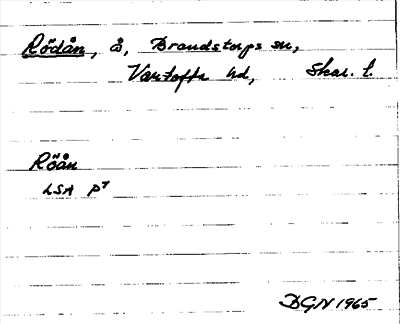 Rödån, å, Brandstorps sn,
Vartofta hd, Skar. l.
Röån
LSA P7
DGN 1965